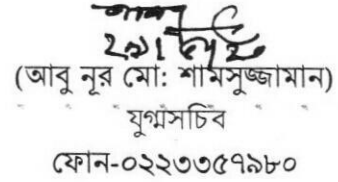 (আবু নূর মো: শামসুজ্জামান)
যুগ্মসচিব
ফোন-০২২৩৩৫৭৯৮০